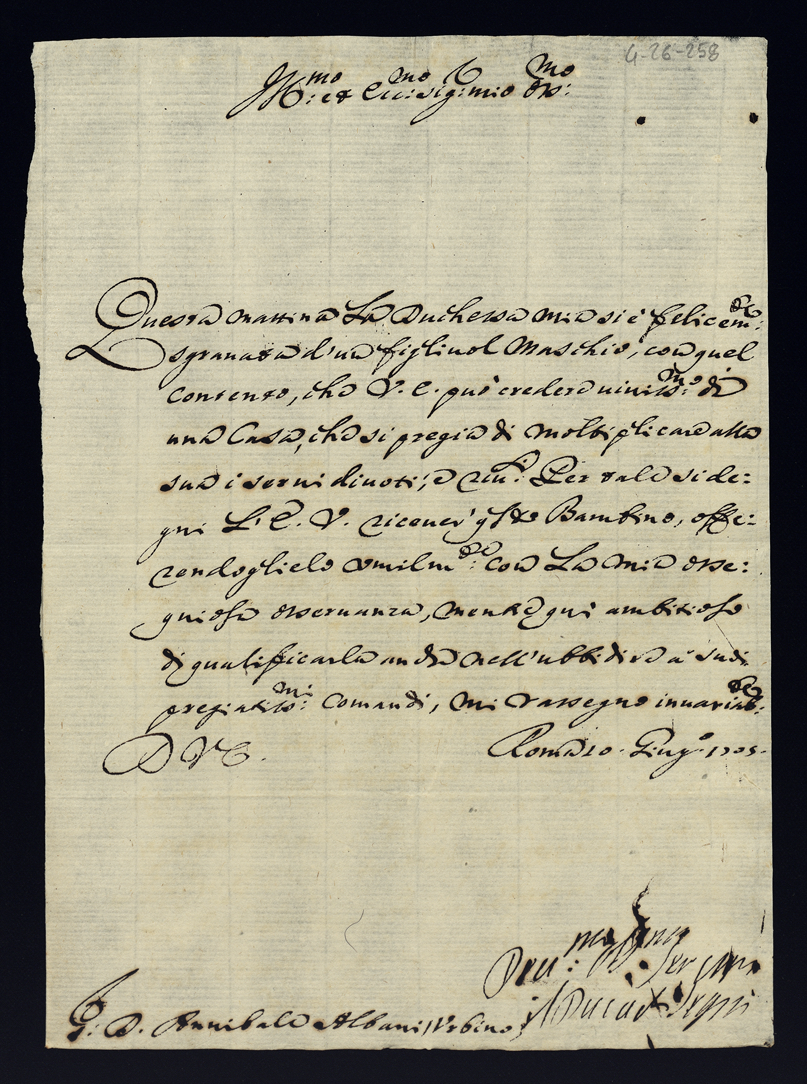 4-26-258
Ill:mo et Ecc:mo Sig:r mio Oss:mo
Questa mattina La Duchessa mia si è felicem:te
sgravata d'un figliuol Maschio, con quel
contento, che V. E. può credere viviss:mo di
una Casa, che si pregia di moltiplicare alla
sua i servi divoti, e riv:ti Per tale si de:
gni L'E. V. ricever q'sto Bambino, offe:
rendoglielo umilm:te con La mia osse:
quiosa osservanza, mentre qui ambitioso
di qualificarla anche nell'ubbidire a' suoi
pregiatiss:mi comandi, mi rassegno invariab:te
D V E.
Roma 20. Giug.o 1705.
Dev:mo
Ser
il Duca di Segni
S:r D. Annibale Albani, Urbino